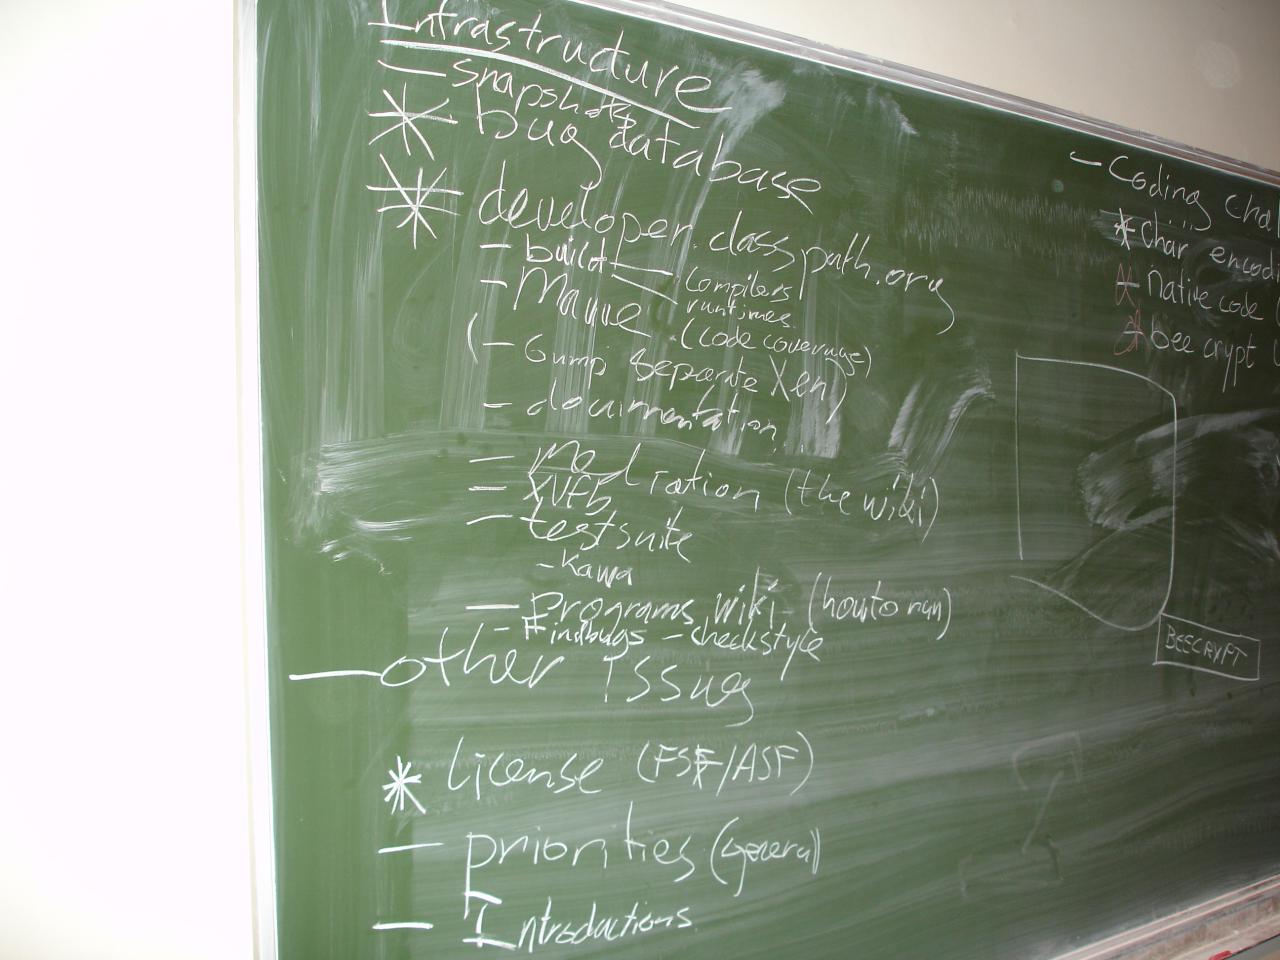 Infrastructure
— snapshots
* bug database
* developer.classpath.org
- build — compilers
runtimes
- Mauve (code coverage)
(- Gump separate Xen)
- documentation
- mediation (the wiki)
- XVFb
- testsuite
- Kawa
- programs wiki (howto run)
- Findbugs - checkstyle
— other issues
* license (FSF/ASF)
- priorities (general)
- Introductions
- Coding
* char
* native code
* bee crypt
BEECRYPT